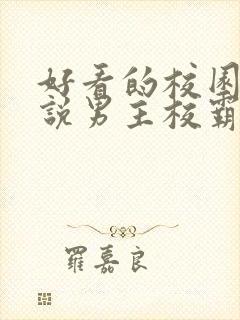 好看的校园
說男主校霸
羅嘉良